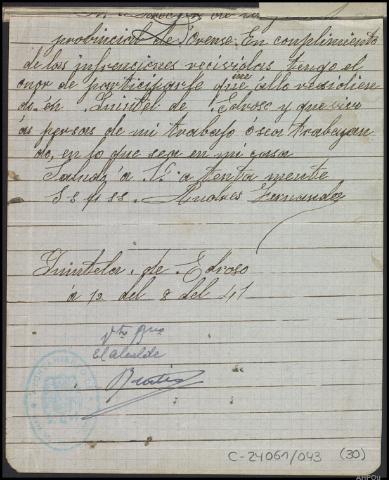 provincial de Orense. En conplimiento
de las instrusiones recividas tengo el
onor de participarle que me allo residien
do en Quintel de Edroso y que vivo
de mi trabajo ó sea trabajan
do, en lo que sea en mi casa
Saluda a V. a tenta mente
S s q ss. Andres Fernandez
Quintela de Edroso
á 12 del 8 del 41
Vto Bno
El alcalde
C-24061/043 (30)
AHPOU